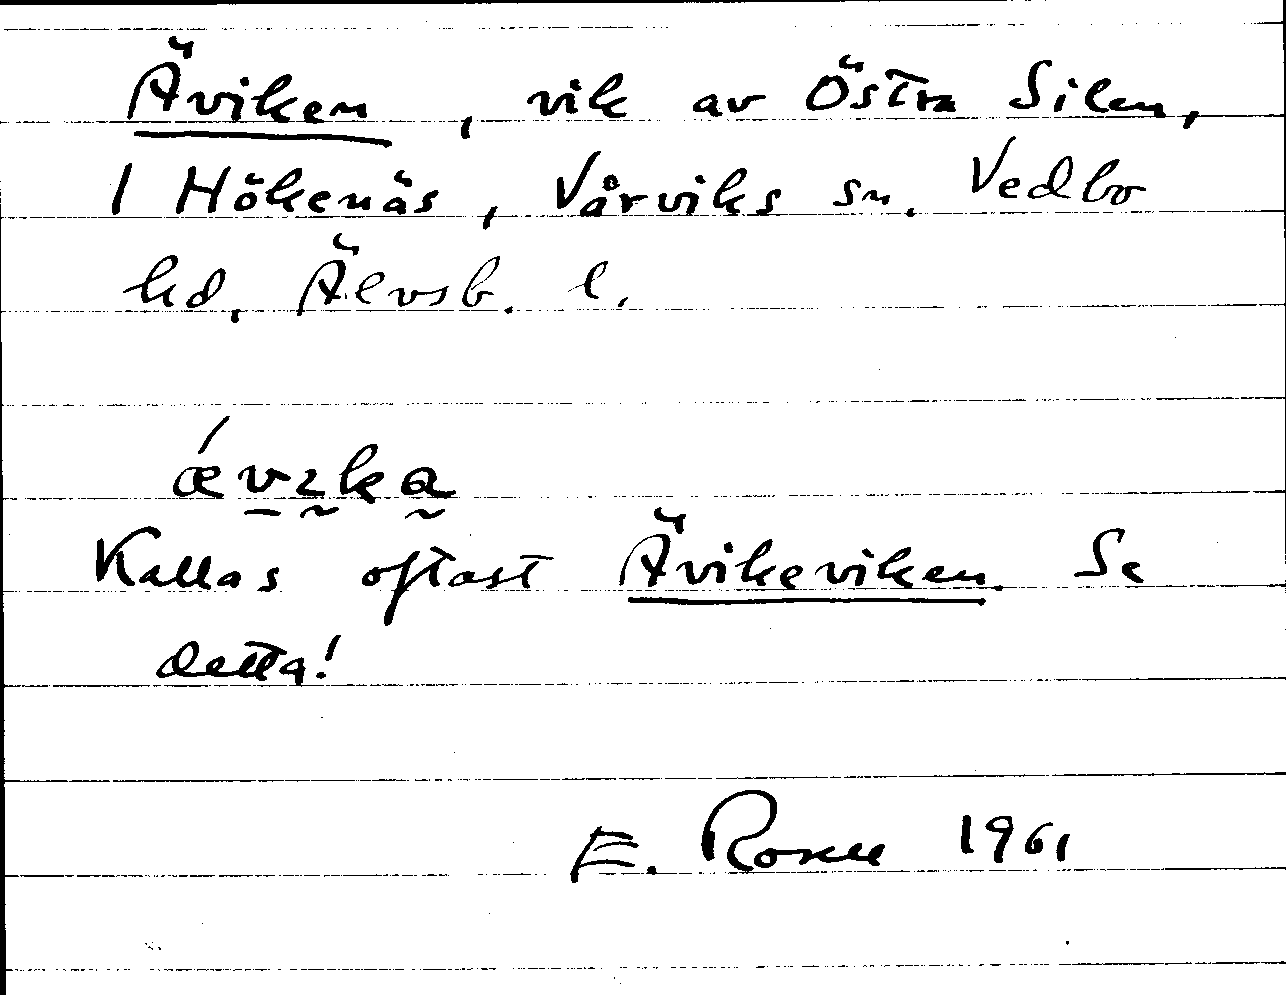 Äviken, vik av Östra Silen,
I Hökenäs, Vårviks sn. Vedbo
hd. Älvsb. l.
ǽvıka
Kallas oftast Ävikeviken. Se
detta!
E. Rosell 1961